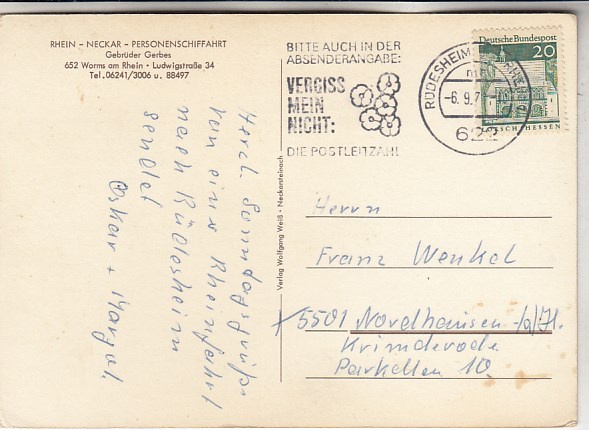 RHEIN – NECKAR – PERSONENSCHIFFAHRT
Gebrüder Gerbes
652 Worms am Rhein • Ludwigstraße 34
Tel. 06241/3006 u. 88497
Herzl. Sonntagsgrüße
von einer Rheinfahrt
nach Rüdesheim
sendet
Oskar + Margot.
Verlag Wolfgang Weiß • Neckarsteinach
BITTE AUCH IN DER
ABSENDERANGABE:
VERGISS
MEIN
NICHT:
DIE POSTLEITZAHL
RÜDESHEIM
-6.9.7
622
Deutsche Bundespost
20
LORSCH/HESSEN
Herrn
Franz Wenkel
5501 Nordhausen-a/H.
Krimderode
Parkallee 10.